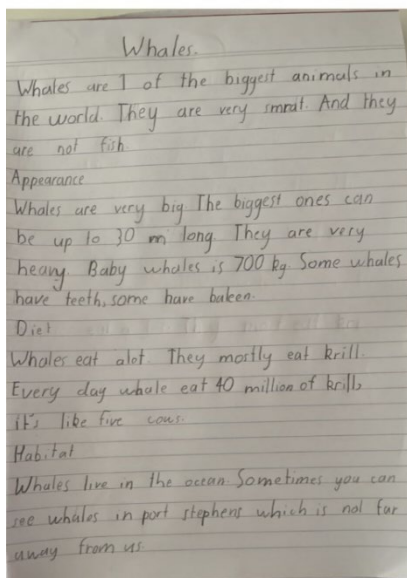 Whales.
Whales are 1 of the biggest animals in
the world. They are very smrat. And they
are not fish
Appearance
Whales are very big The biggest ones can
be up to 30 m long. They are very
heavy. Baby whales is 700 kg. Some whales
have teeth, some have baleen.
Diet
Whales eat alot. They mostly eat krill.
Every day whale eat 40 million of krill,
it's like five cows.
Habitat
Whales live in the ocean. Sometimes you can
see whales in port stephens which is not far
away from us.